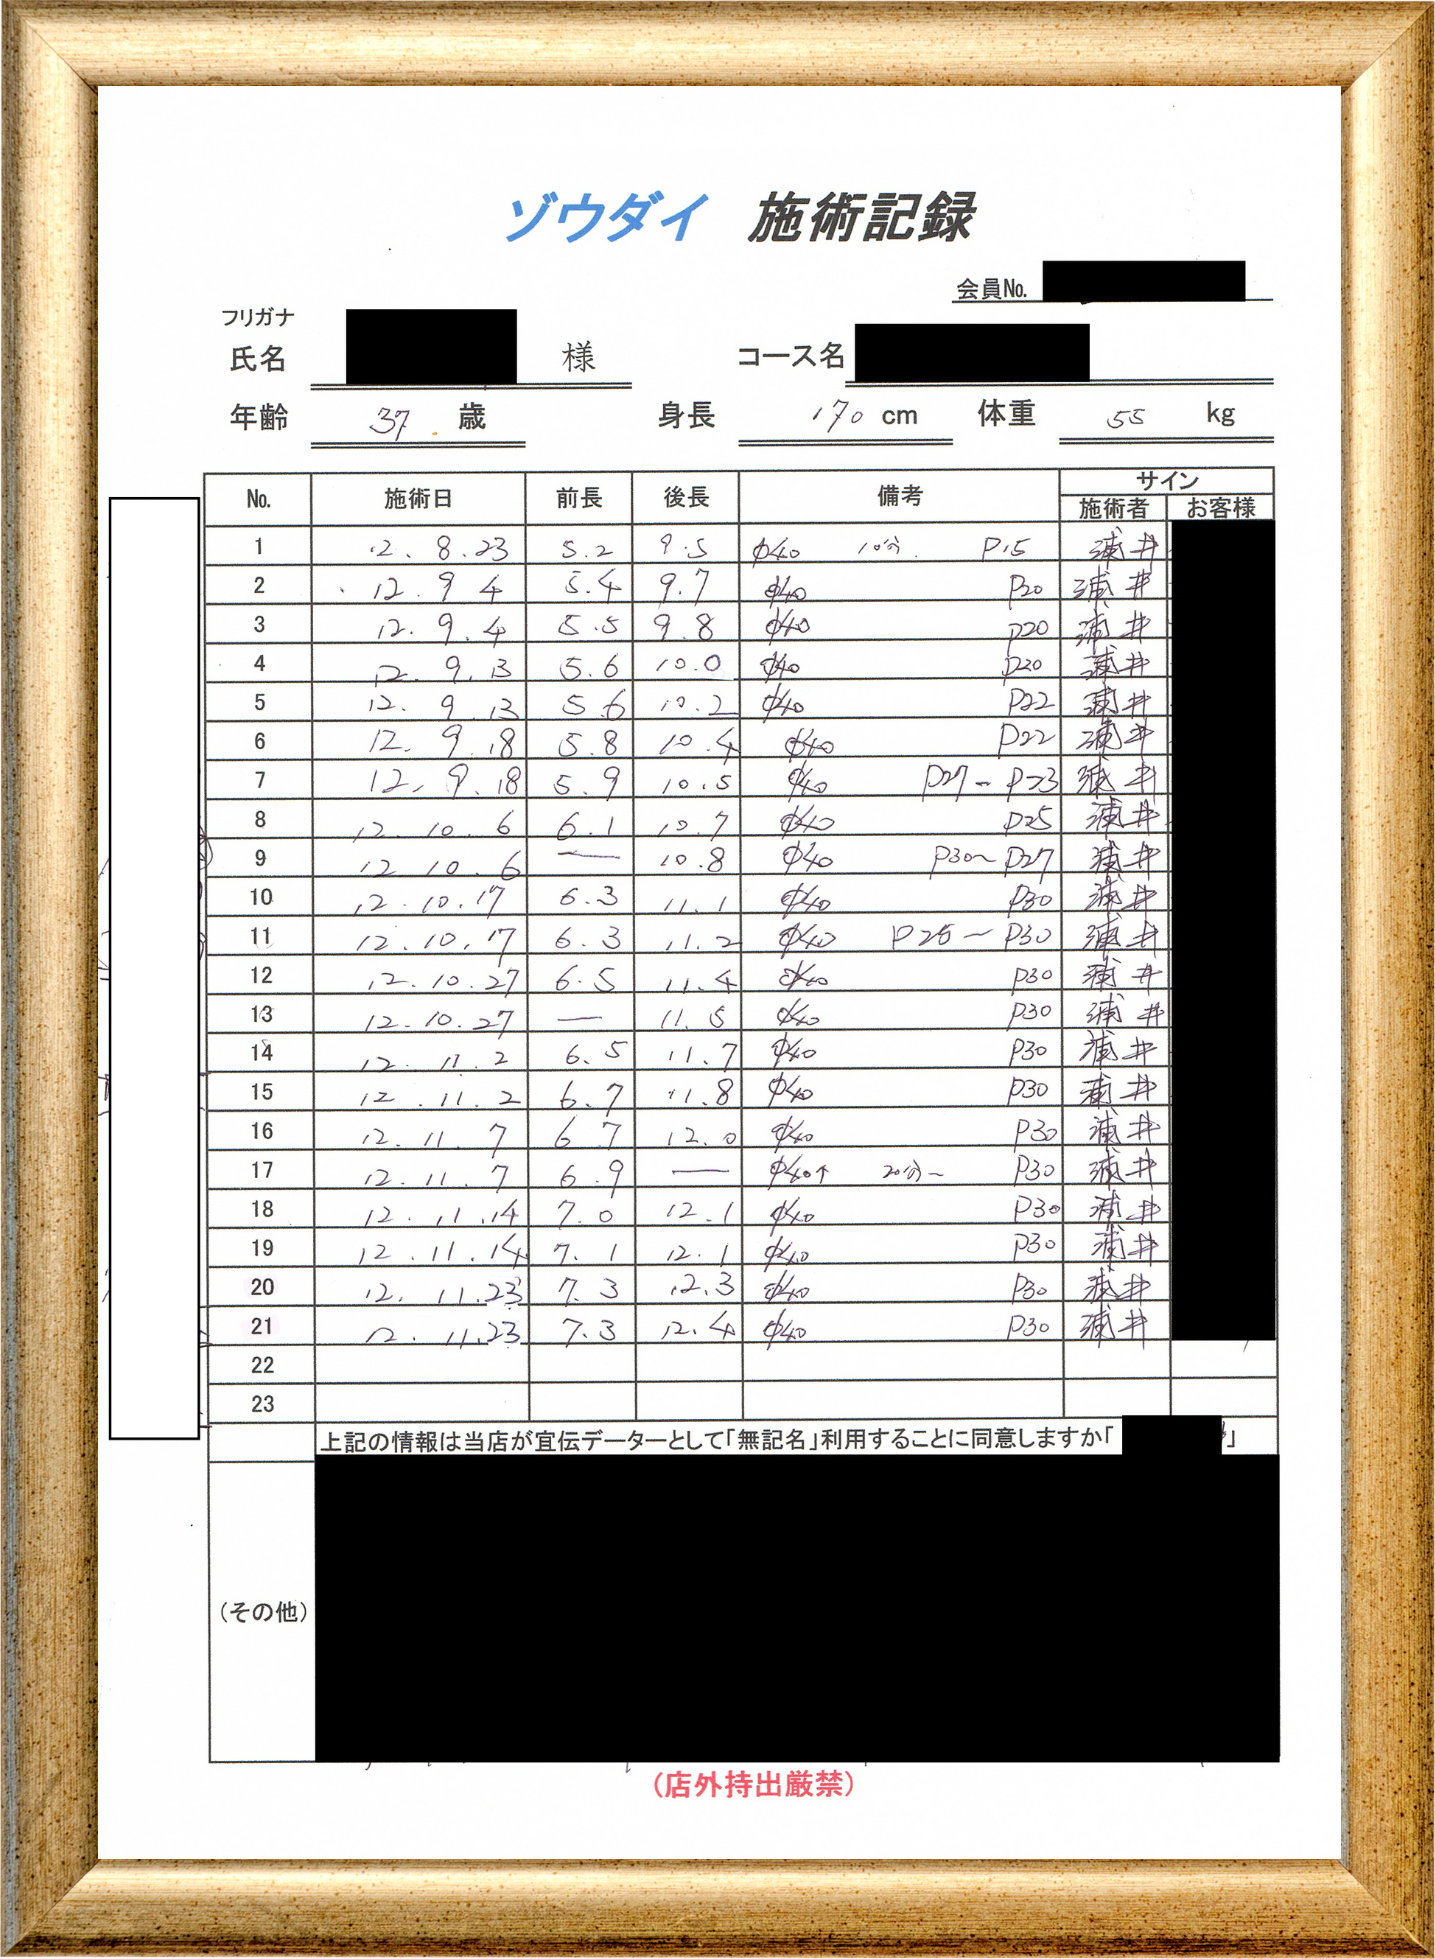 ゾウダイ 施術記録
会員No.
フリガナ
氏名 様 コース名
年齢 37 歳 身長 170 cm 体重 55 kg
No. 施術日 前長 後長 備考 サイン
施術者 お客様
1 12. 8. 23 5.2 9.5 φ40 10分. P15 浦井
2 12. 9 4 5.4 9.7 φ40 P20 浦井
3 12. 9. 4 5.5 9.8 φ40 P20 浦井
4 12. 9. 13 5.6 10.0 φ40 P20 浦井
5 12. 9. 13 5.6 10.2 φ40 P22 浦井
6 12. 9. 18 5.8 10.4 φ40 P22 浦井
7 12. 9. 18 5.9 10.5 φ40 P27~P23 浦井
8 12. 10. 6 6.1 10.7 φ40 P25 浦井
9 12 10. 6 — 10.8 φ40 P30~P27 浦井
10 12. 10. 17 6.3 11.1 φ40 P30 浦井
11 12. 10. 17 6.3 11.2 φ40 P25~P30 浦井
12 12. 10. 27 6.5 11.4 φ40 P30 浦井
13 12. 10. 27 — 11.5 φ40 P30 浦井
14 12. 11. 2 6.5 11.7 φ40 P30 浦井
15 12. 11. 2 6.7 11.8 φ40 P30 浦井
16 12. 11. 7 6.7 12.0 φ40 P30 浦井
17 12. 11. 7 6.9 — φ40↑ 20分~ P30 浦井
18 12. 11. 14 7.0 12.1 φ40 P30 浦井
19 12. 11. 14 7.1 12.1 φ40 P30 浦井
20 12. 11. 23 7.3 12.3 φ40 P30 浦井
21 12. 11. 23 7.3 12.4 φ40 P30 浦井
22
23
上記の情報は当店が宣伝データーとして「無記名」利用することに同意しますか「 」
(その他)
(店外持出厳禁)